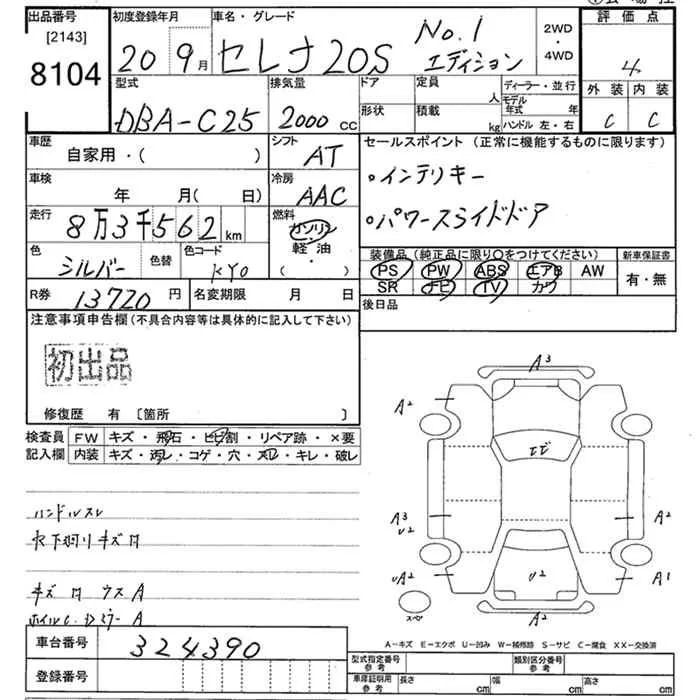 出品番号 初度登録年月 車名・グレード 評価点
[2143]
8104 20 9月 セレナ 20S No.1 エディション 2WD・4WD 4
型式 排気量 ドア 定員 人 ディーラー・並行 外装 内装
DBA-C25 2000 CC 形状 積載 kg モデル年式 年 ハンドル 左・右 C C
車歴 自家用・( ) シフト AT セールスポイント (正常に機能するものに限ります)
車検 年 月( 日) 冷房 AAC ・インテリキー
走行 8万3千562km 燃料 ガソリン 軽油 ・( ) ・パワースライドドア
色 シルバー 色替 色コード KY0 装備品 (純正品に限り○をつけてください) 新車保証書
PS PW ABS エアB AW 有・無
SR ナビ TV カワ
R券 13720円 名変期限 月 日 後日品
注意事項申告欄 (不具合内容等は具体的に記入して下さい)
初出品
修復歴 有 [箇所 ]
検査員 FW キズ・飛石・ヒビ割・リペア跡・×要
記入欄 内装 キズ・汚レ・コゲ・穴・スレ・キレ・破レ
ハンドルスレ
キズ ウス A
A
A3
A2
A3
U2
A2
UA2
U2
A1
A2
スペ
A−キズ E−エクボ U−凹み W−補修跡 S−サビ C−腐食 XX−交換済
車台番号 324390
登録番号
型式指定番号 参考 類別区分番号 参考
車庫証明用 参考 長さ cm 幅 cm 高さ cm